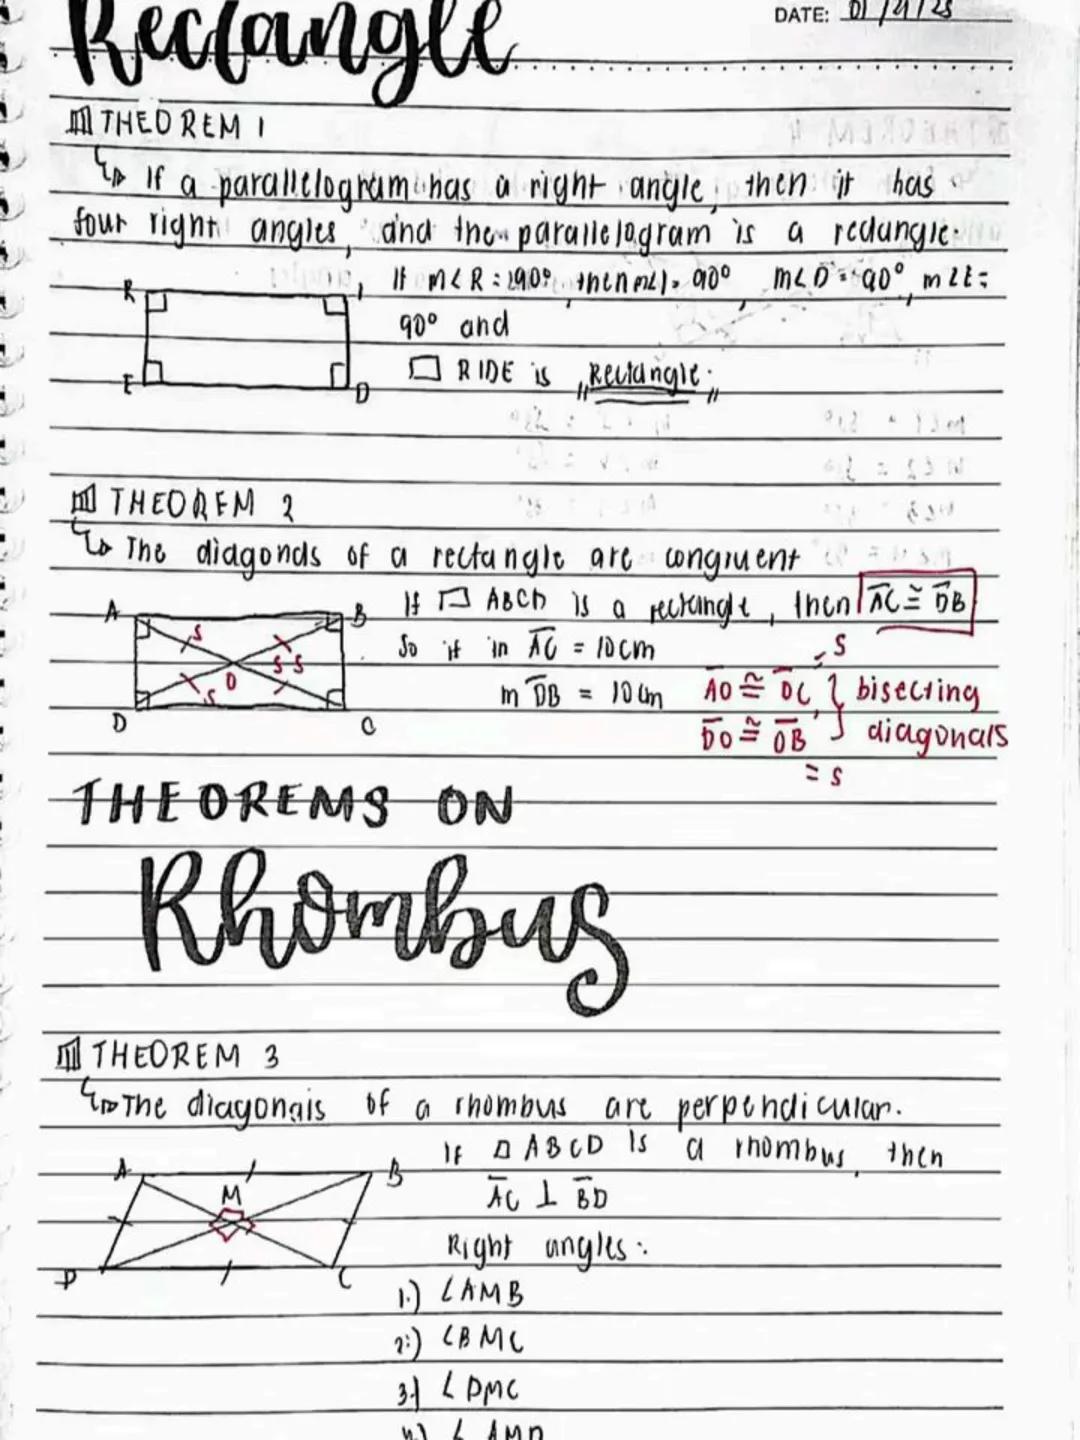 Rectangle
DATE: 01/21/25
THEOREM 1
If a parallelogram has a right angle, then it has
four right angles, and the parallelogram is a rectangle.
If m∠R = 90°, then m∠I = 90°, m∠D = 90°, m∠E =
90° and
▭ RIDE is Rectangle.
R I
E D
THEOREM 2
The diagonals of a rectangle are congruent
If ▭ ABCD is a rectangle, then AC ≅ DB
So if in AC = 10cm
m DB = 10cm
AO ≅ OC, = S
DO ≅ OB = S
bisecting
diagonals
A B
S S S S
O
D C
THEOREMS ON
Rhombus
THEOREM 3
The diagonals of a rhombus are perpendicular.
If ▱ ABCD is a rhombus, then
AC ⊥ BD
Right angles:
1.) ∠AMB
2.) ∠BMC
3.) ∠DMC
4.) ∠AMD
A B
M
D C